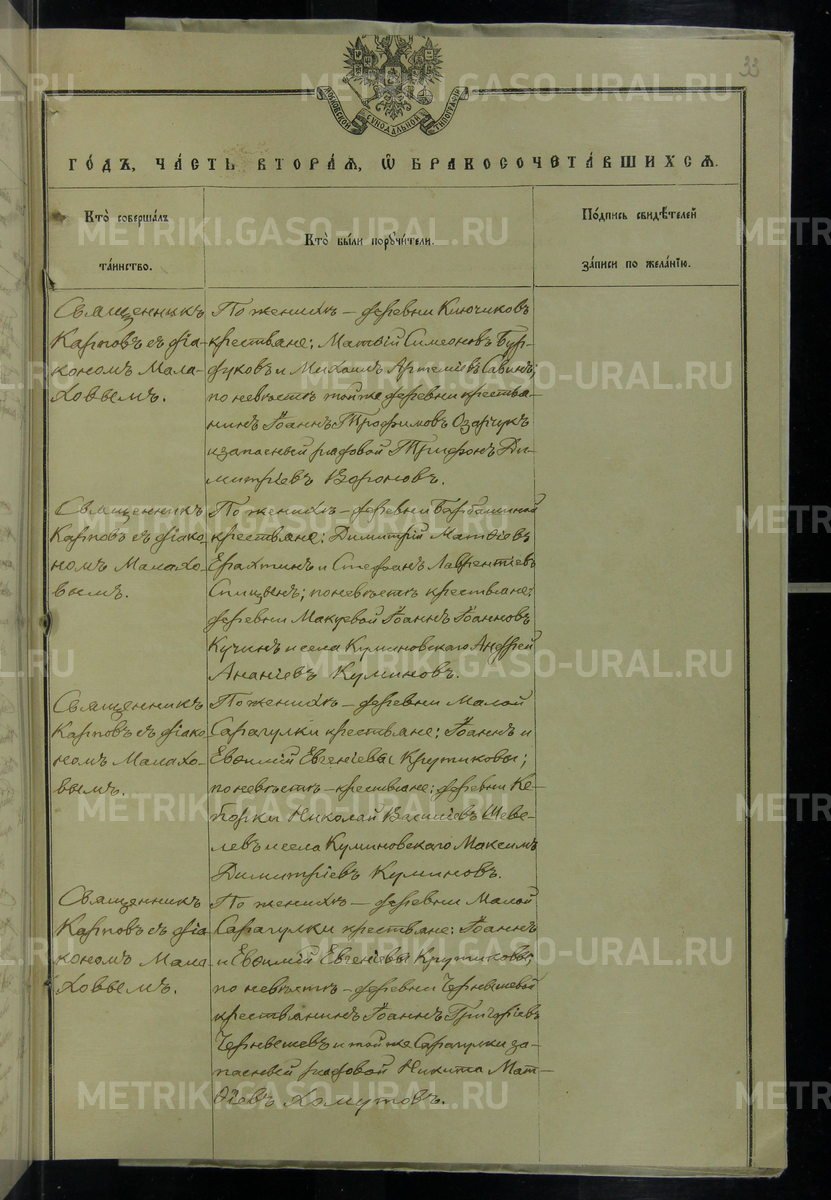 33
МОСКОВСКОЙ СѴНОДАЛЬНОЙ ТИПОГРАФІИ
ГО́ДЪ, ЧА́СТЬ ВТОРА́Я, Ѽ БРАКОСОЧЕТА́ВШИХСЯ.
Кто̀ соверша́лъ
та́инство.
Кто̀ бы́ли порꙋчи́тели.
По́дпись свидѣ́телей
за́писи по жела́нїю.
Священникъ
Карповъ съ діа-
кономъ Мала-
ховымъ.
По женихѣ – деревни Ключиковъ
крестьяне: Матѳій Симеоновъ Бур-
дуковъ и Михаилъ Артеміевъ Савинъ;
по невѣстѣ той же деревни крестья-
нинъ Іоаннъ Трофимовъ Озарчукъ
и запасный рядовой Трифонъ Ди-
митріевъ Вороновъ.
Священникъ
Карповъ съ діако-
номъ Малахо-
вымъ.
По женихѣ – деревни Барабашиной
крестьяне: Димитрій Матѳіевъ
Ерахтинъ и Стефанъ Лаврентіевъ
Спицынъ; по невѣстѣ крестьяне:
деревни Макуевой Іоаннъ Іоанновъ
Кучинъ и села Куминовскаго Андрей
Ананіевъ Куминовъ.
Священникъ
Карповъ съ діако-
номъ Малахо-
вымъ.
По женихѣ – деревни Малой
Сарагулки крестьяне: Іоаннъ и
Евѳимій Евгеніевы Крутиковы;
по невѣстѣ – крестьяне: деревни Ке-
Николай Василіевъ Шеве-
левъ и села Куминовскаго Максимъ
Димитріевъ Куминовъ.
Священникъ
Карповъ съ діа-
кономъ Мала-
ховымъ.
По женихѣ – деревни Малой
Сарагулки крестьяне: Іоаннъ
и Евѳимій Евгеніевы Крутиковы;
по невѣстѣ – деревни Чернышевой
крестьянинъ Іоаннъ Григоріевъ
Чернышевъ и той же Сарагулки за-
пасный рядовой Никита Мат-
ѳіевъ Хомутовъ.
METRIKI.GASO-URAL.RU